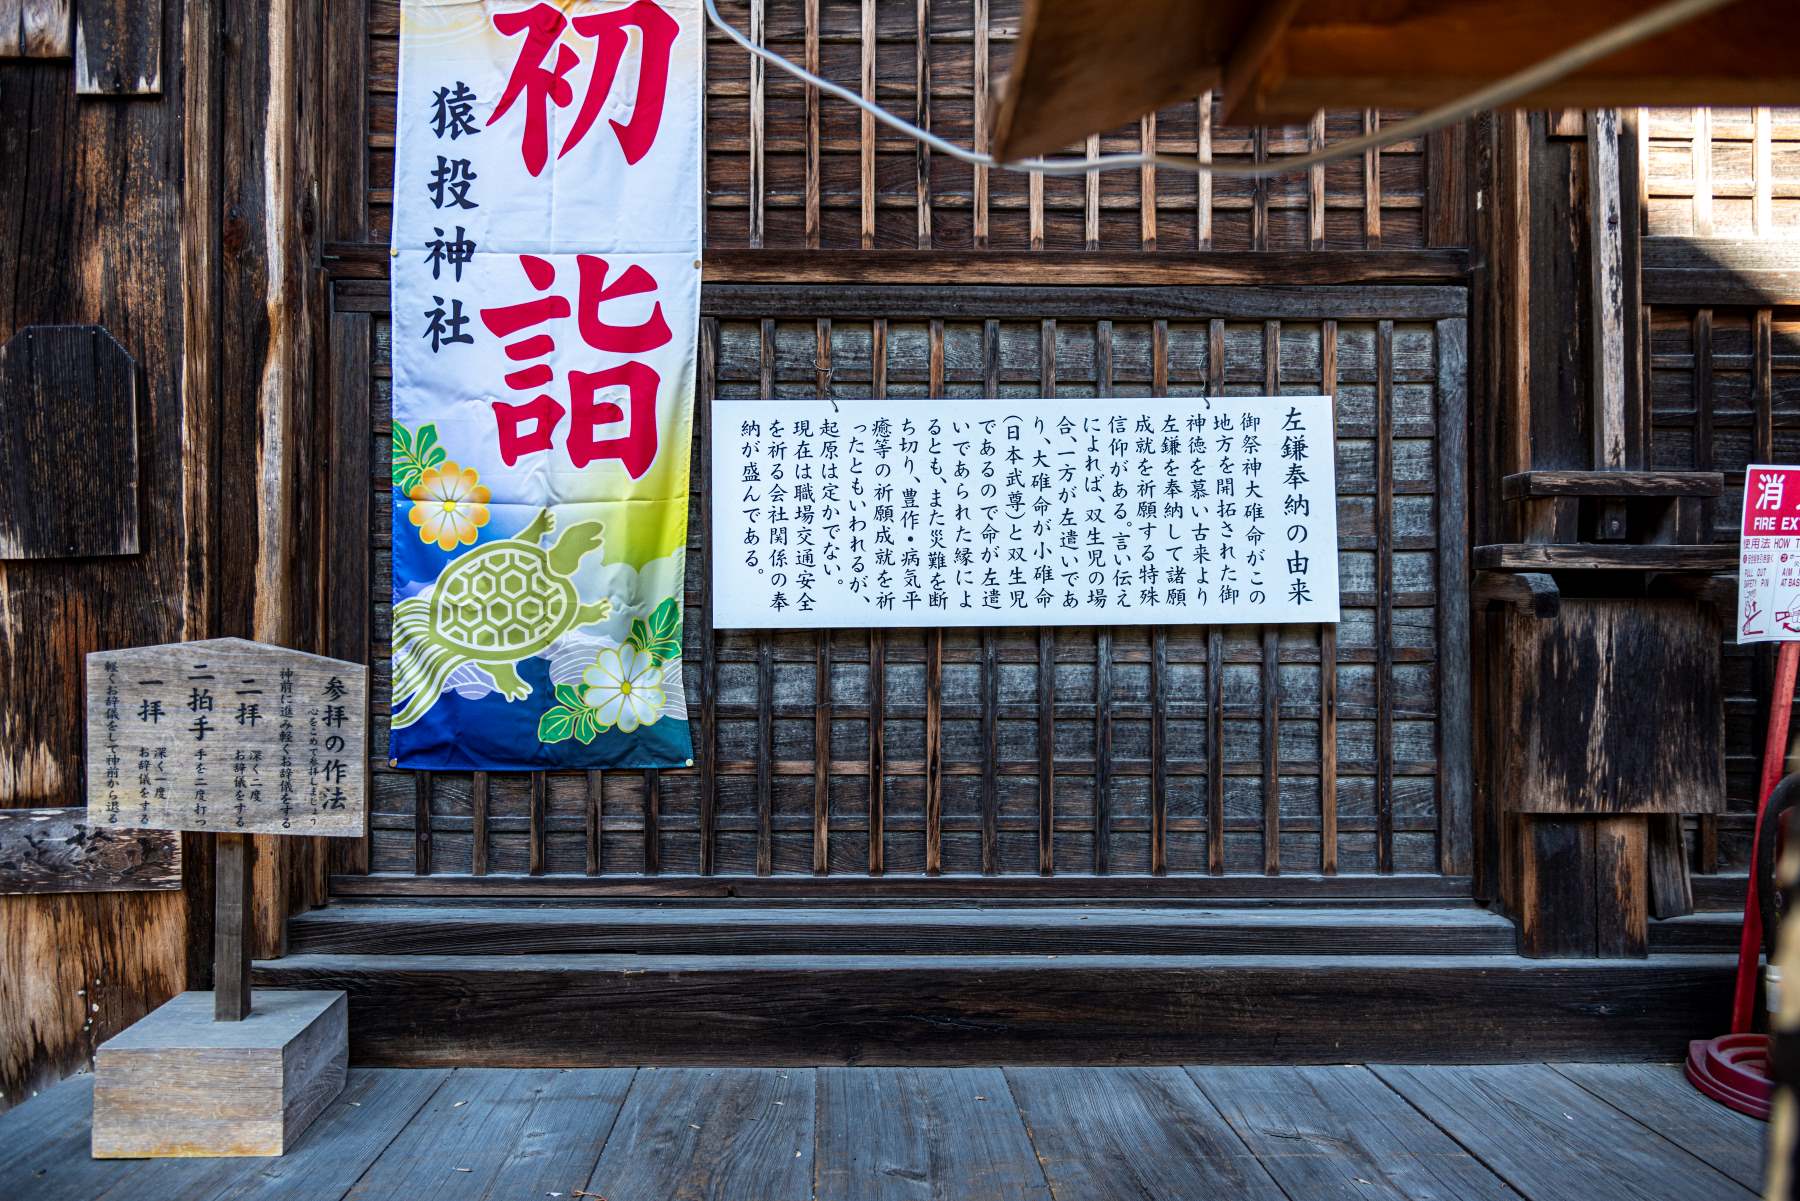 初詣
猿投神社
左鎌奉納の由来
御祭神大碓命がこの
地方を開拓された御
神徳を慕い古来より
左鎌を奉納して諸願
成就を祈願する特殊
信仰がある。言い伝え
によれば、双生児の場
合、一方が左遣いであ
り、大碓命が小碓命
(日本武尊)と双生児
であるので命が左遣
いであられた縁によ
るとも、また災難を断
ち切り、豊作・病気平
癒等の祈願成就を祈
ったともいわれるが、
起原は定かでない。
現在は職場交通安全
を祈る会社関係の奉
納が盛んである。
参拝の作法
心をこめて参拝しましょう
神前に進み軽くお辞儀をする
二拝
深く二度
お辞儀をする
二拍手
手を二度打つ
一拝
深く一度
お辞儀をする
軽くお辞儀をして神前から退る
消
FIRE EX
使用法 HOW T
PULL OUT
SAFETY PIN
AIM
AT BAS